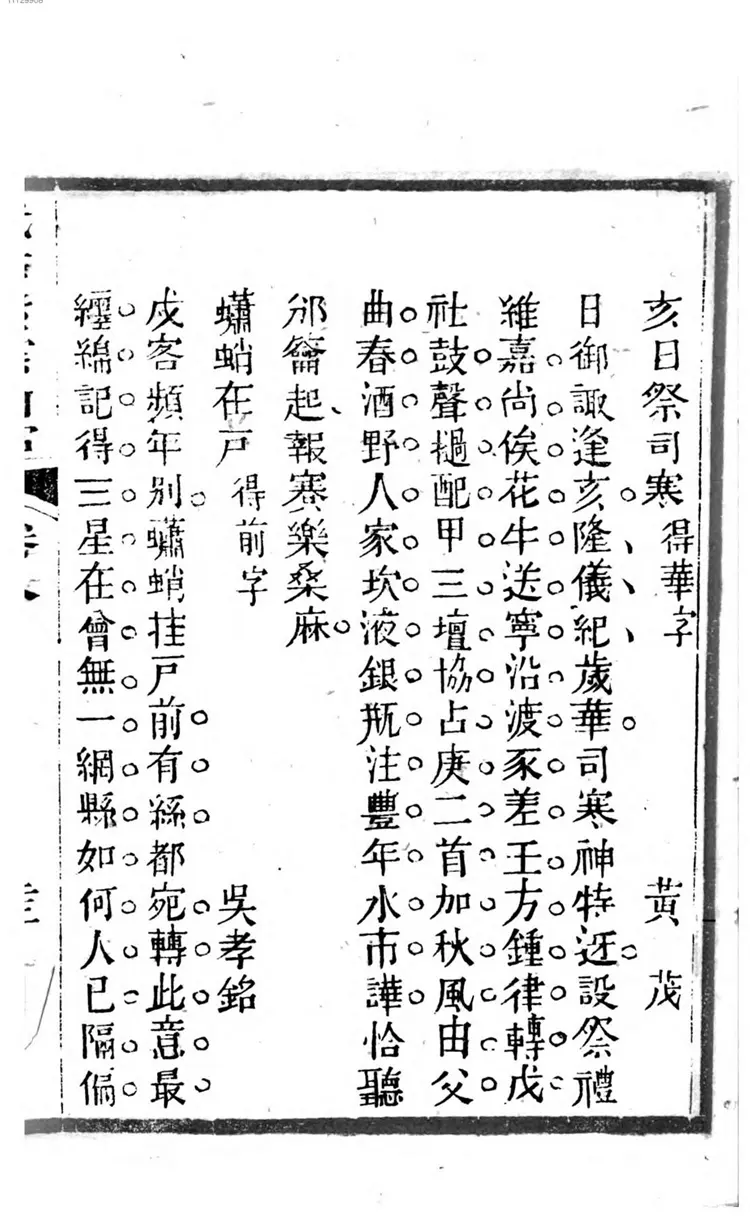 亥日祭司寒 得華字 黃茂
日御諏逢亥隆儀紀歲華司寒神特迓設祭禮
維嘉尚俟花牛送寧沿渡豕差王方鍾律轉戊
社鼓聲撾配甲三壇協占庚二首加秋風由父
曲春酒野人家坎液銀瓶注豐年水市譁恰聽
邠籥起報賽樂桑麻
蠨蛸在戸 得前字 吳孝銘
戍客頻年別蠨蛸挂戸前有絲都宛轉此意最
纏綿記得三星在曾無一網縣如何人已隔偏